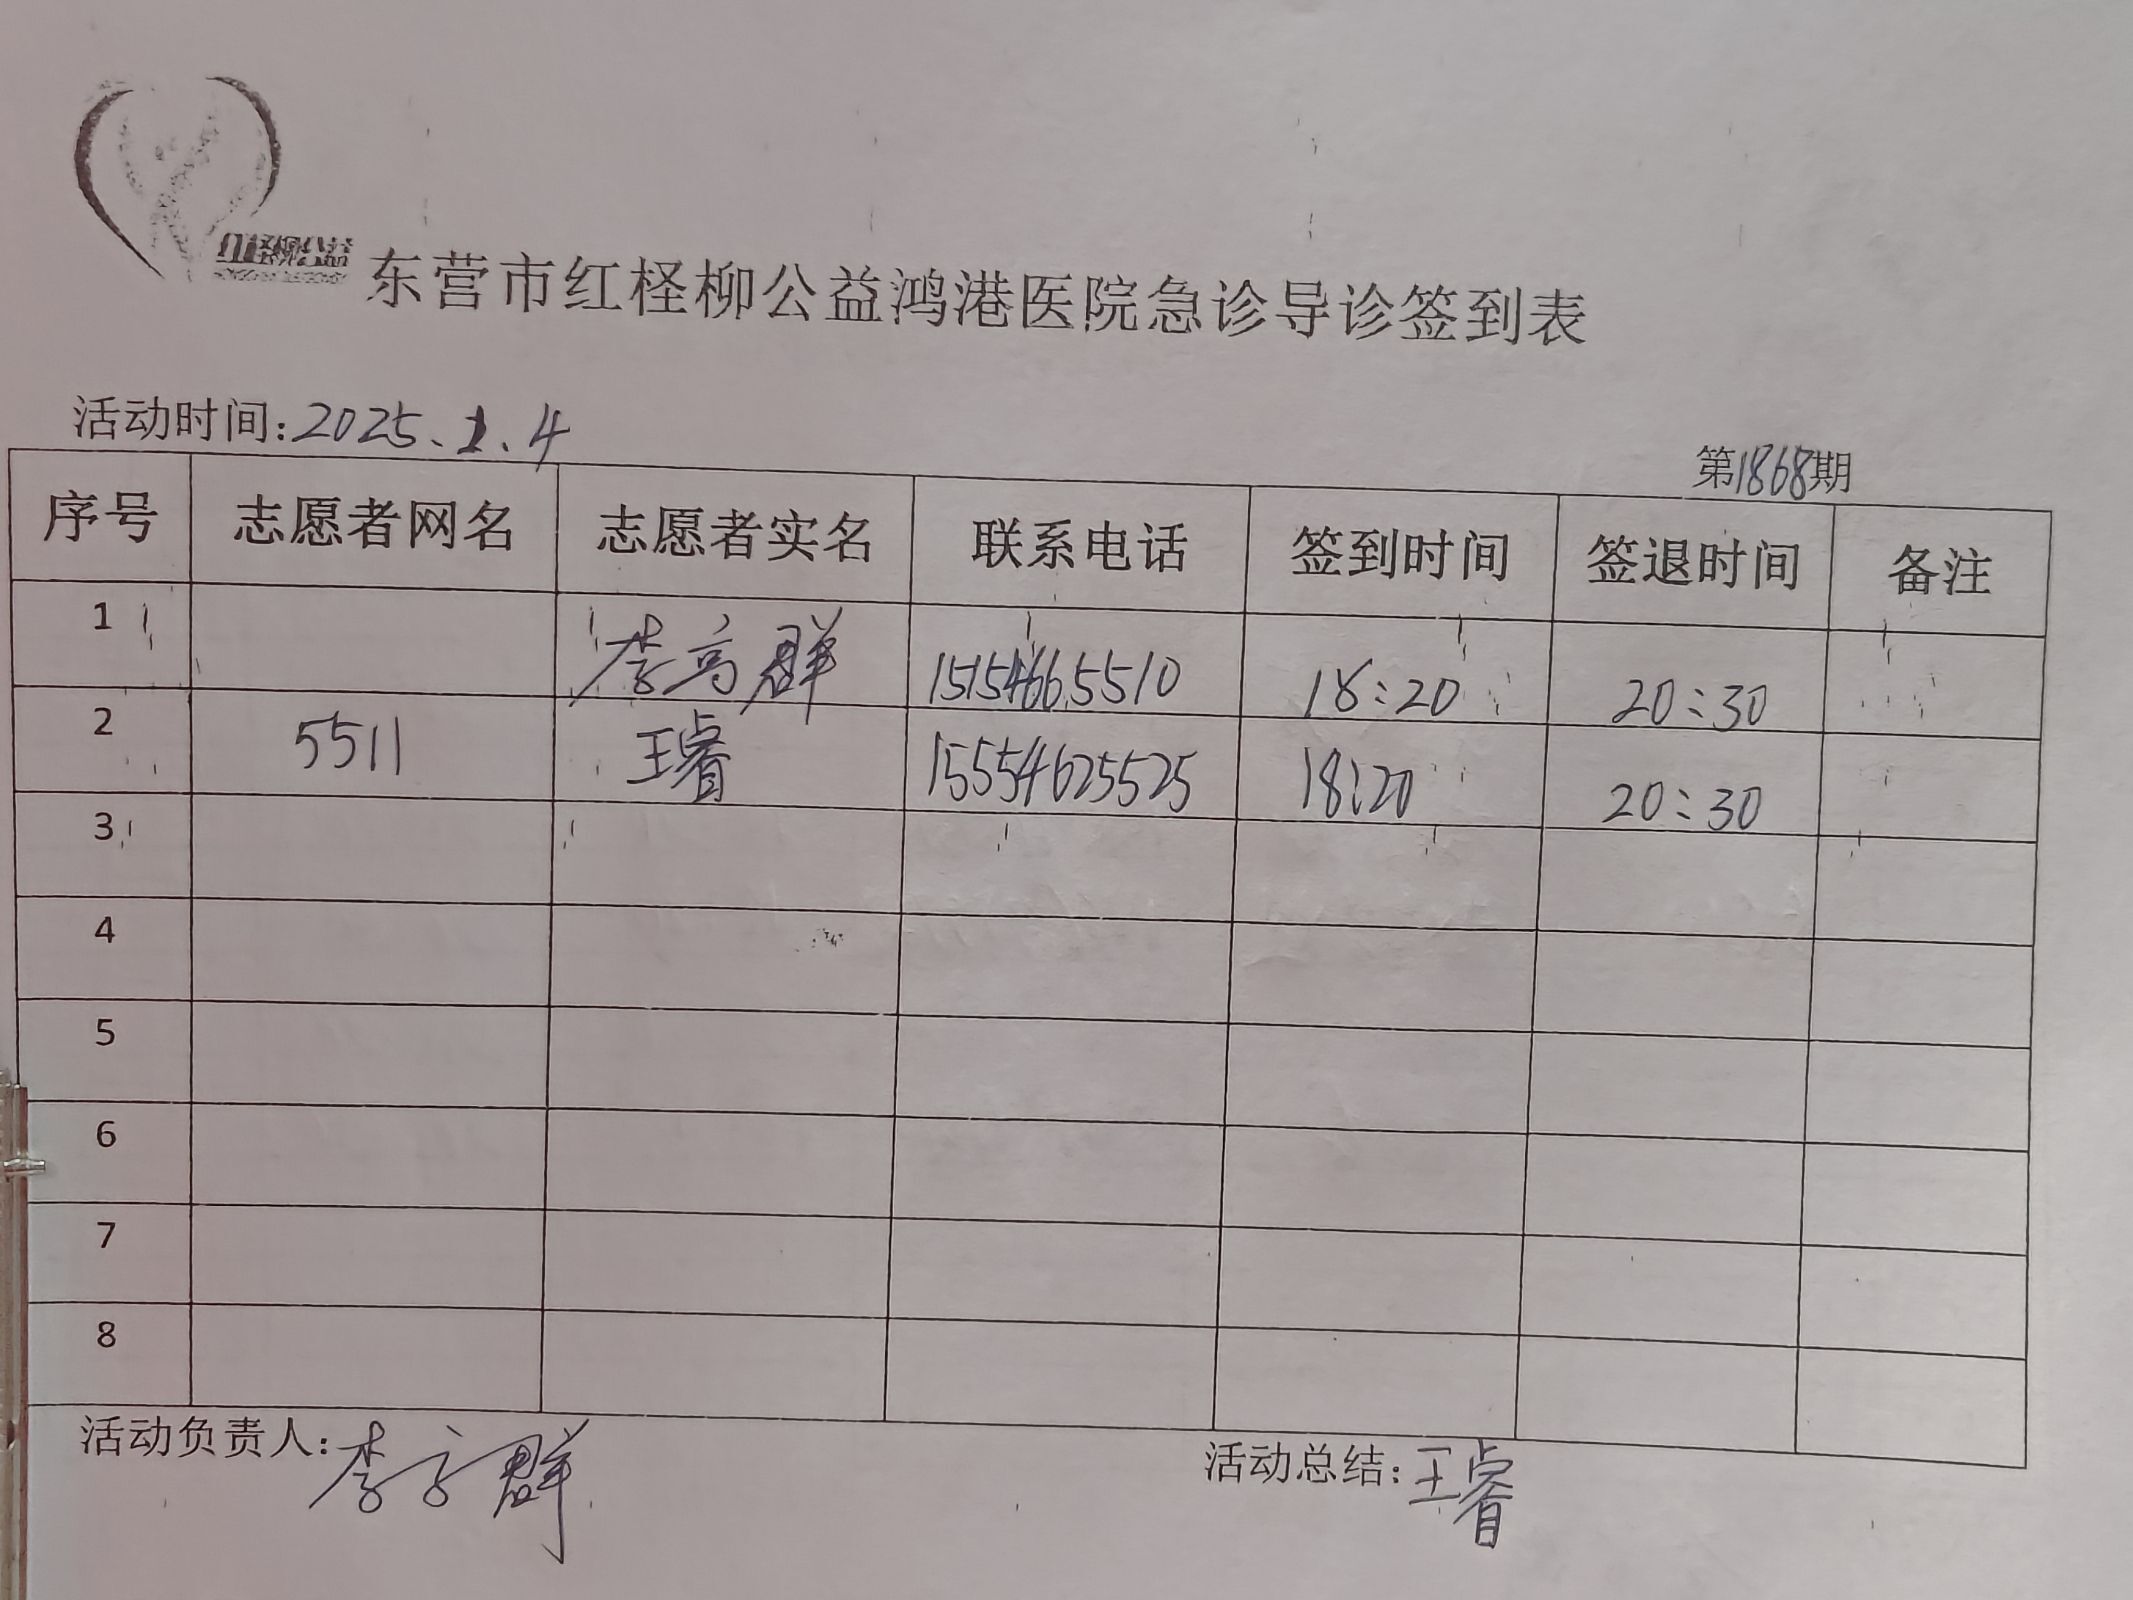 红柽柳公益
东营市红柽柳公益鸿港医院急诊导诊签到表
活动时间:2025.2.4
第1868期
序号 志愿者网名 志愿者实名 联系电话 签到时间 签退时间 备注
1 李高群 15154665510 18:20 20:30
2 5511 王睿 15554625525 18:20 20:30
3
4
5
6
7
8
活动负责人:李高群 活动总结:王睿